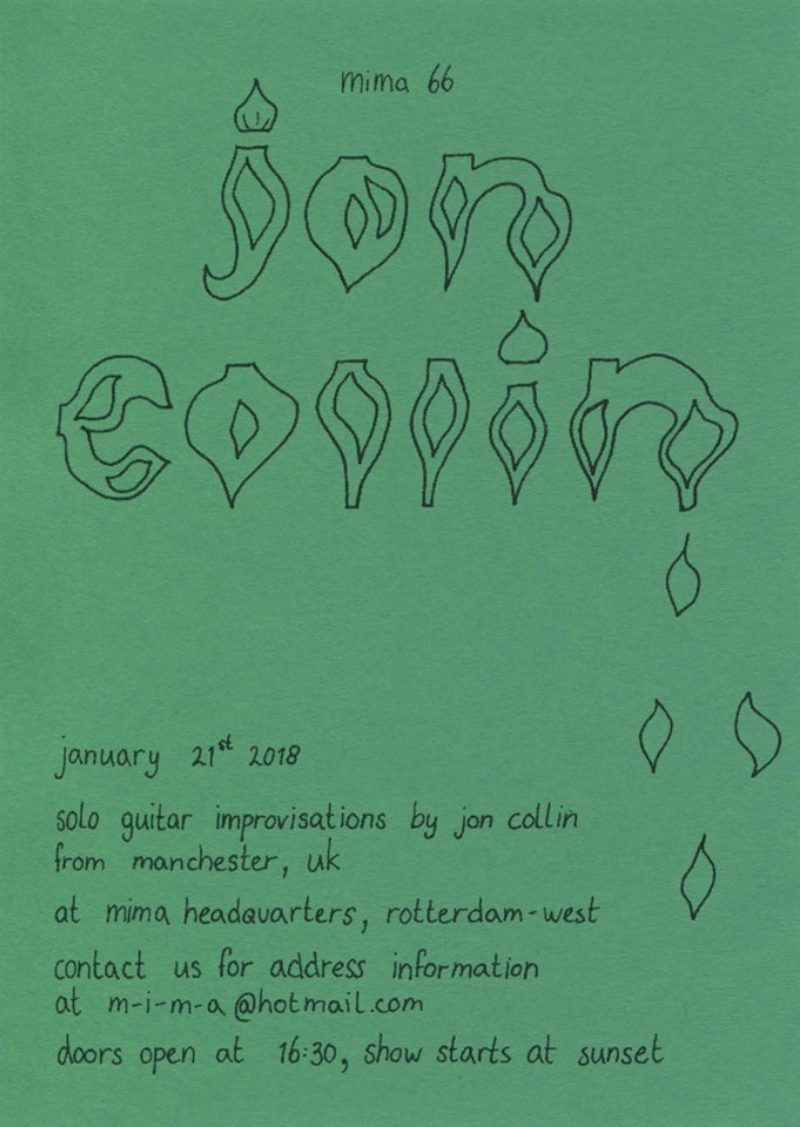 mima 66
jon
collin
january 21st 2018
solo guitar improvisations by jon collin
from manchester, uk
at mima headquarters, rotterdam-west
contact us for address information
at m-i-m-a@hotmail.com
doors open at 16:30, show starts at sunset